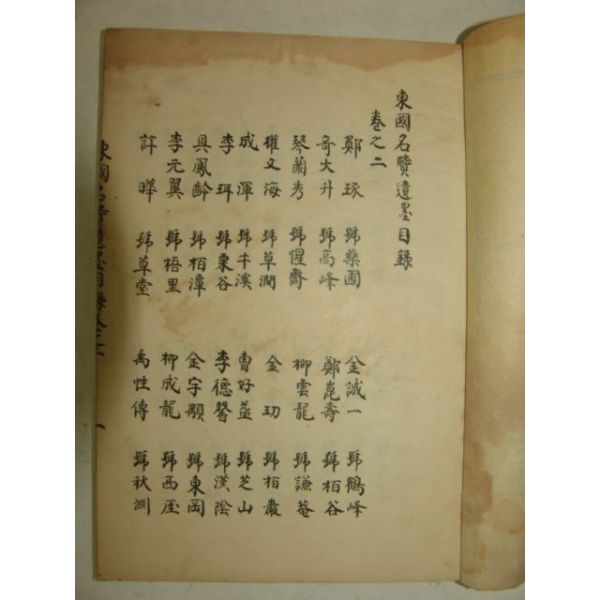 東國名賢遺墨目錄
卷之二
鄭琢 號藥圃 金誠一 號鶴峰
奇大升 號高峰 鄭崑壽 號栢谷
琴蘭秀 號惺齋 柳雲龍 號謙菴
權文海 號草澗 金玏 號栢巖
成渾 號牛溪 曺好益 號芝山
李珥 號栗谷 李德馨 號漢陰
具鳳齡 號栢潭 金宇顒 號東岡
李元翼 號梧里 柳成龍 號西厓
許曄 號草堂 禹性傳 號秋淵
東國名賢遺墨目錄卷之二 一